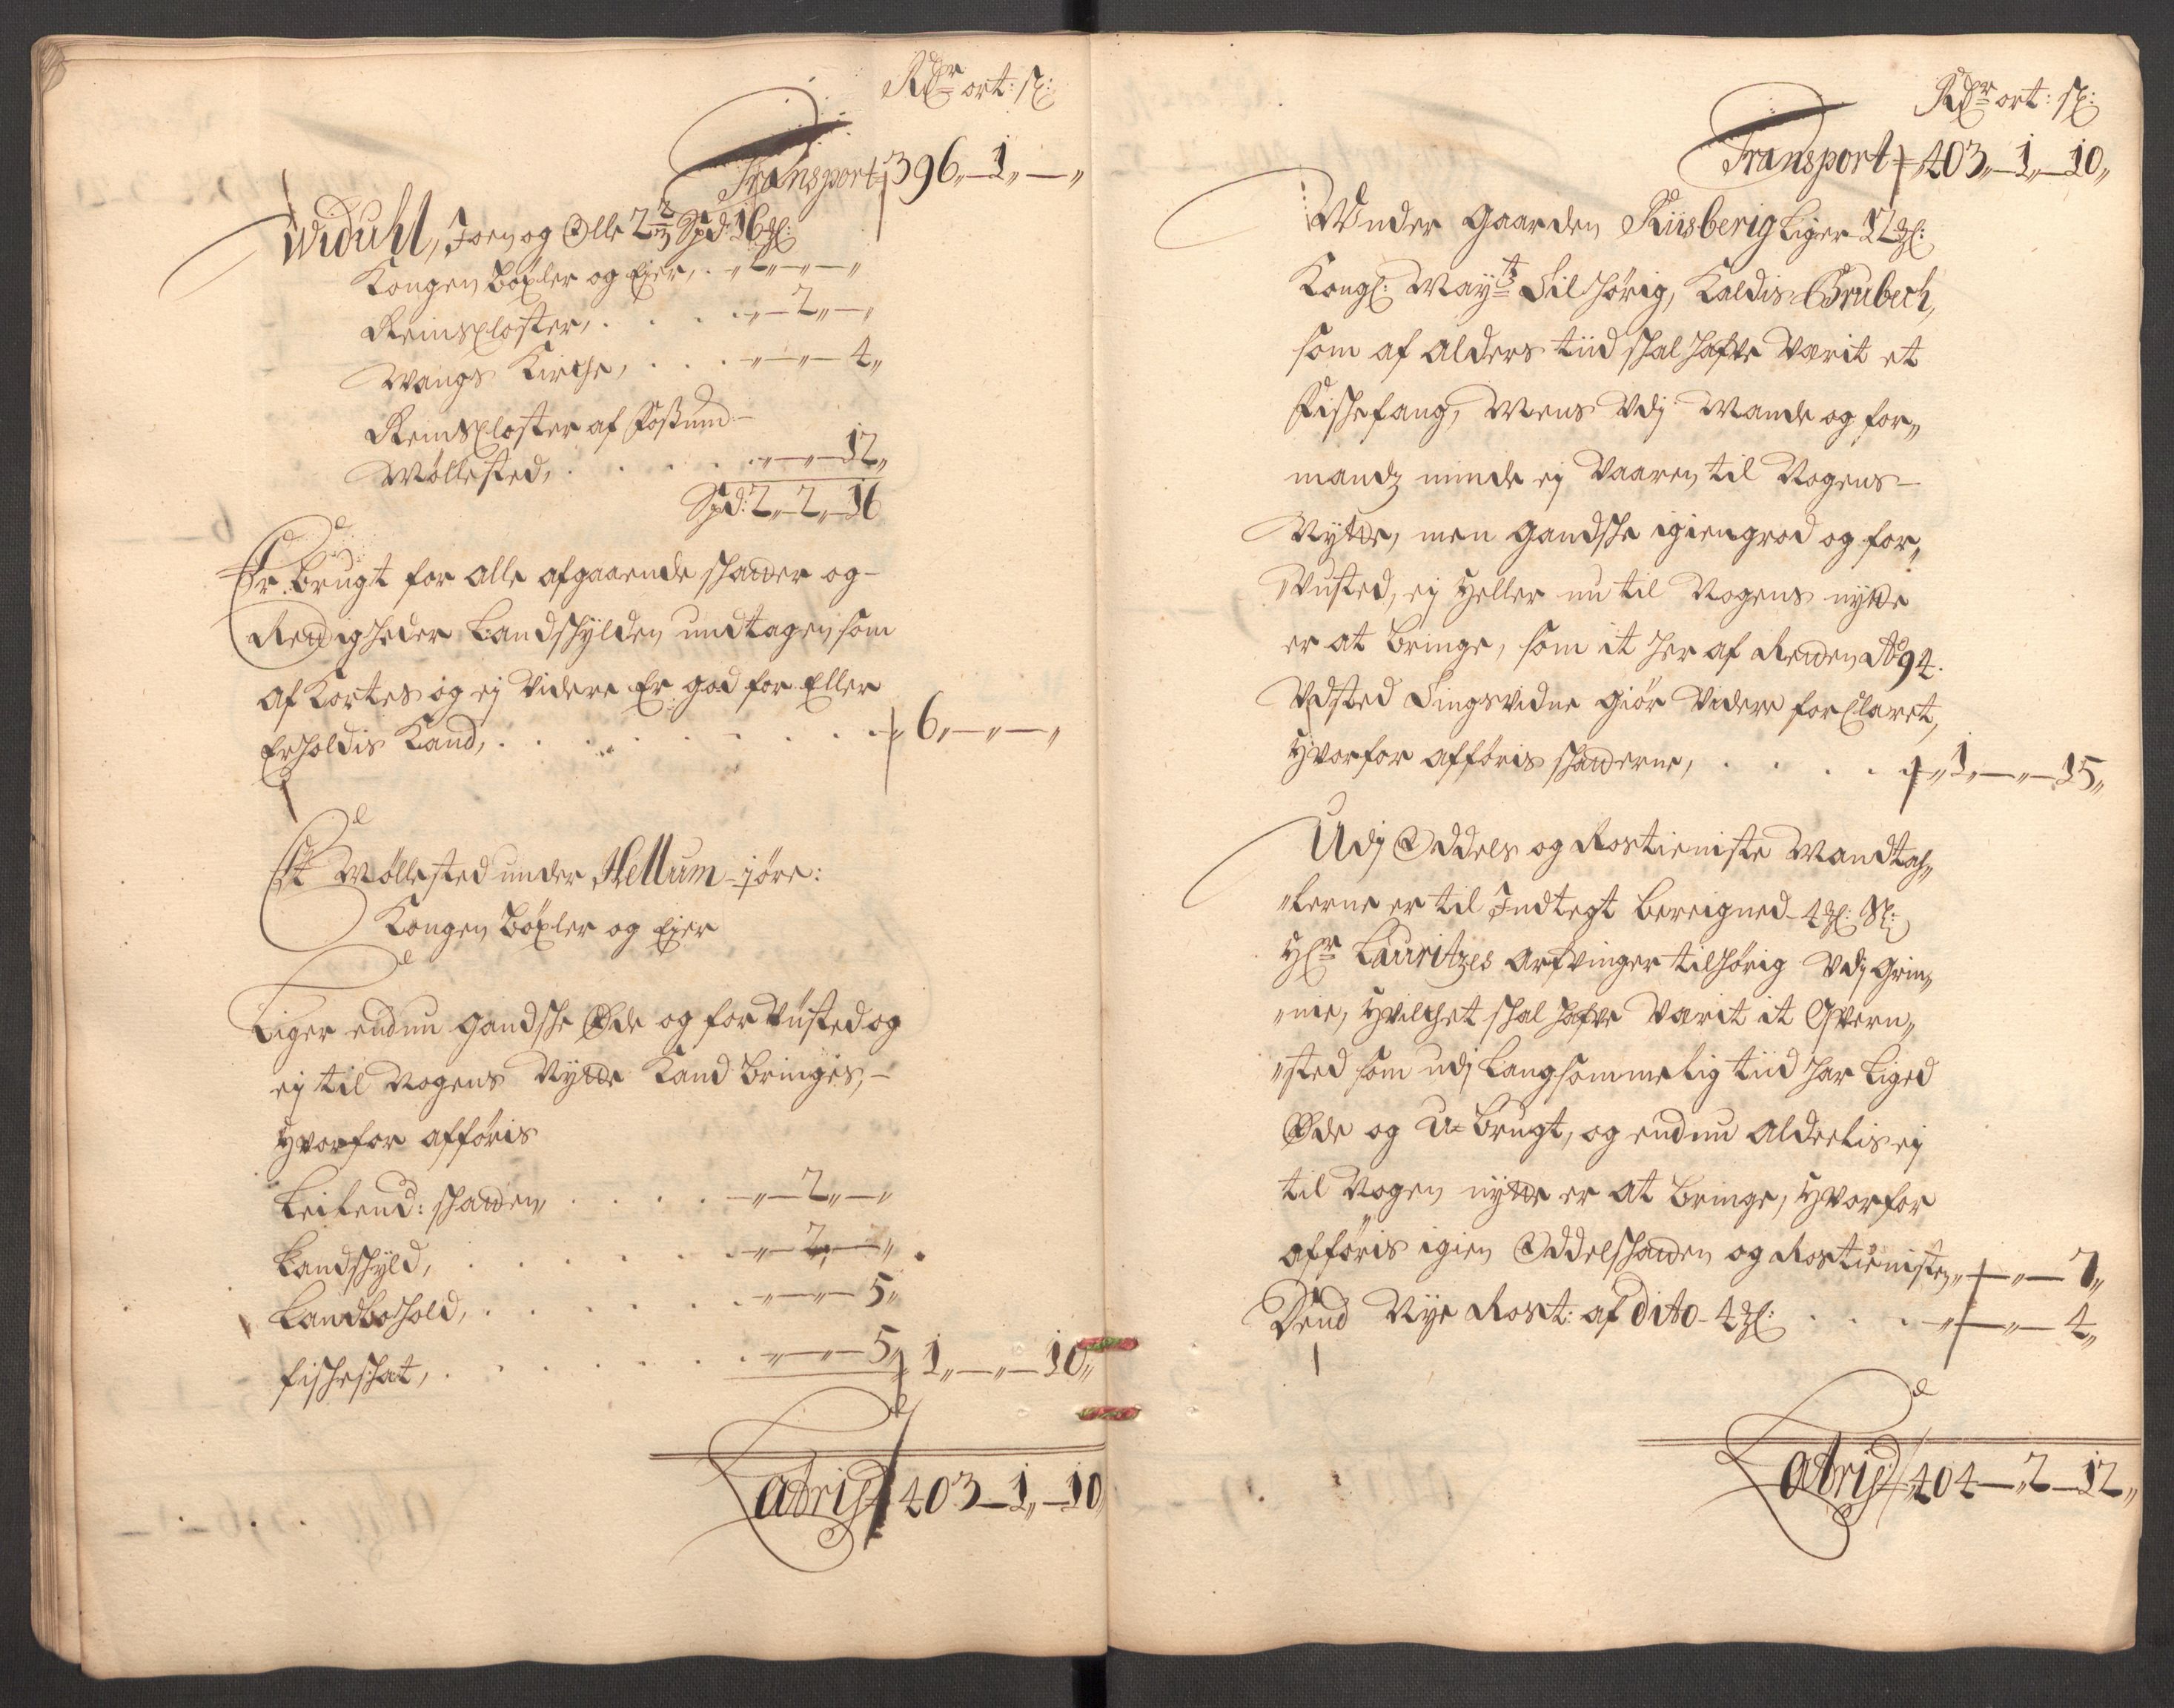 Rdr ort: sk:
Transport 396 „ 1 „ — „
Widuhl, Joen og Olle 2 2/3 Spd 16 mk:
Kongen bøxler og Ejer, . „ 2 „ — „ — „
Reinscloster, . . . . „ — 2 „ — „
Wangs Kirche, . . . „ — „ — 4 „
Reinscloster af Foßum
Møllested, . . . . . „ — „ — 12 „
Spd: 2 „ 2 „ 16
Er brugt for alle afgaaende schatter og
Rettigheder Landschylden undtagen som
af Kortes og ej videre Er god for Eller
Erholdis Kand, . . . . . . . „ 6 „ — „ — „
Et Møllested under Hellum - 1 øre:
Kongen bøxler og Ejer
Liger endnu gandsche Øde og forvüsted og
ej til Nogens Nytte Kand bringes, —
hvorfor afføris
Leilend: schatten . . . . — „ — 2 „ — „
Landschyld, . . . . . . — „ — 2 „ — „
Landbohold, . . . . . . — „ — „ — 5 „
fischeschat, . . . . . . . „ — „ — 5 „ 1 „ — „ — 10 „
Latris 403 — 1 „ — 10
Rdr ort: sk:
Transport „ 403 „ — 1 „ — 10 „
Under Gaarden Riisberig liger 12 mk:
Kongl: Maytz Tilhørig, Kaldis Brubech,
som af alders tiid schal hafve Varit et
Fischefang, Mens udj Mande og for„
mandz minde ej Vaaren til Nogens
Nytte, men gandsche igiengrod og for„
vusted, ej heller nu til Nogens nytte
er at bringe, som it her af Retten Ao 94.
Udsted Tingsvidne giør videre forclaret,
hvorfor afføris schatterne, . . . . „ 1 „ — „ — 15 „
Udj Oddels og Rostieniste Mandtah„
„lerne er til Indtegt bereigned 4 mk: Sl:
Hr Lauritzes Arfvinger tilhørig udj Grin„
„nie, hvilchet schal hafve Varit it Qvern„
„sted som udj langsommelig tiid har liged
Øde og U-brugt, og endnu aldeelis ej
til Nogen nytte er at bringe, hvorfor
afføris igien Oddelschatten og Rostienisten „ — „ — 7 „
Dend Nye Rost: af dito 4 mk: . . . — „ — „ — 4 „
Latris „ 404 — „ 2 — 12 „